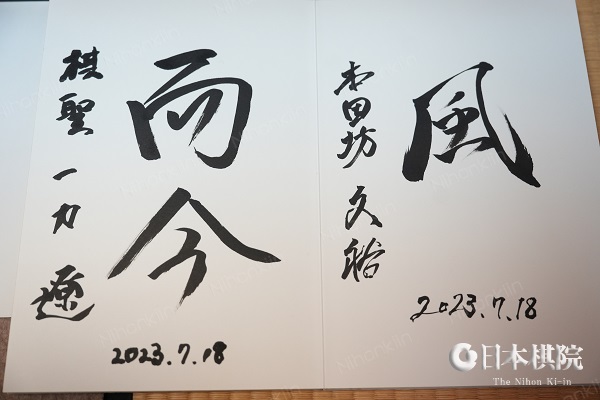 風
本因坊 文裕
2023.7.18
而今
棋聖 一力 遼
2023.7.18
日本棋院
The Nihon Ki-in